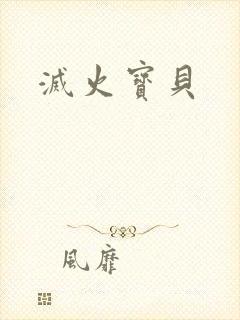 滅火寶貝
風靡